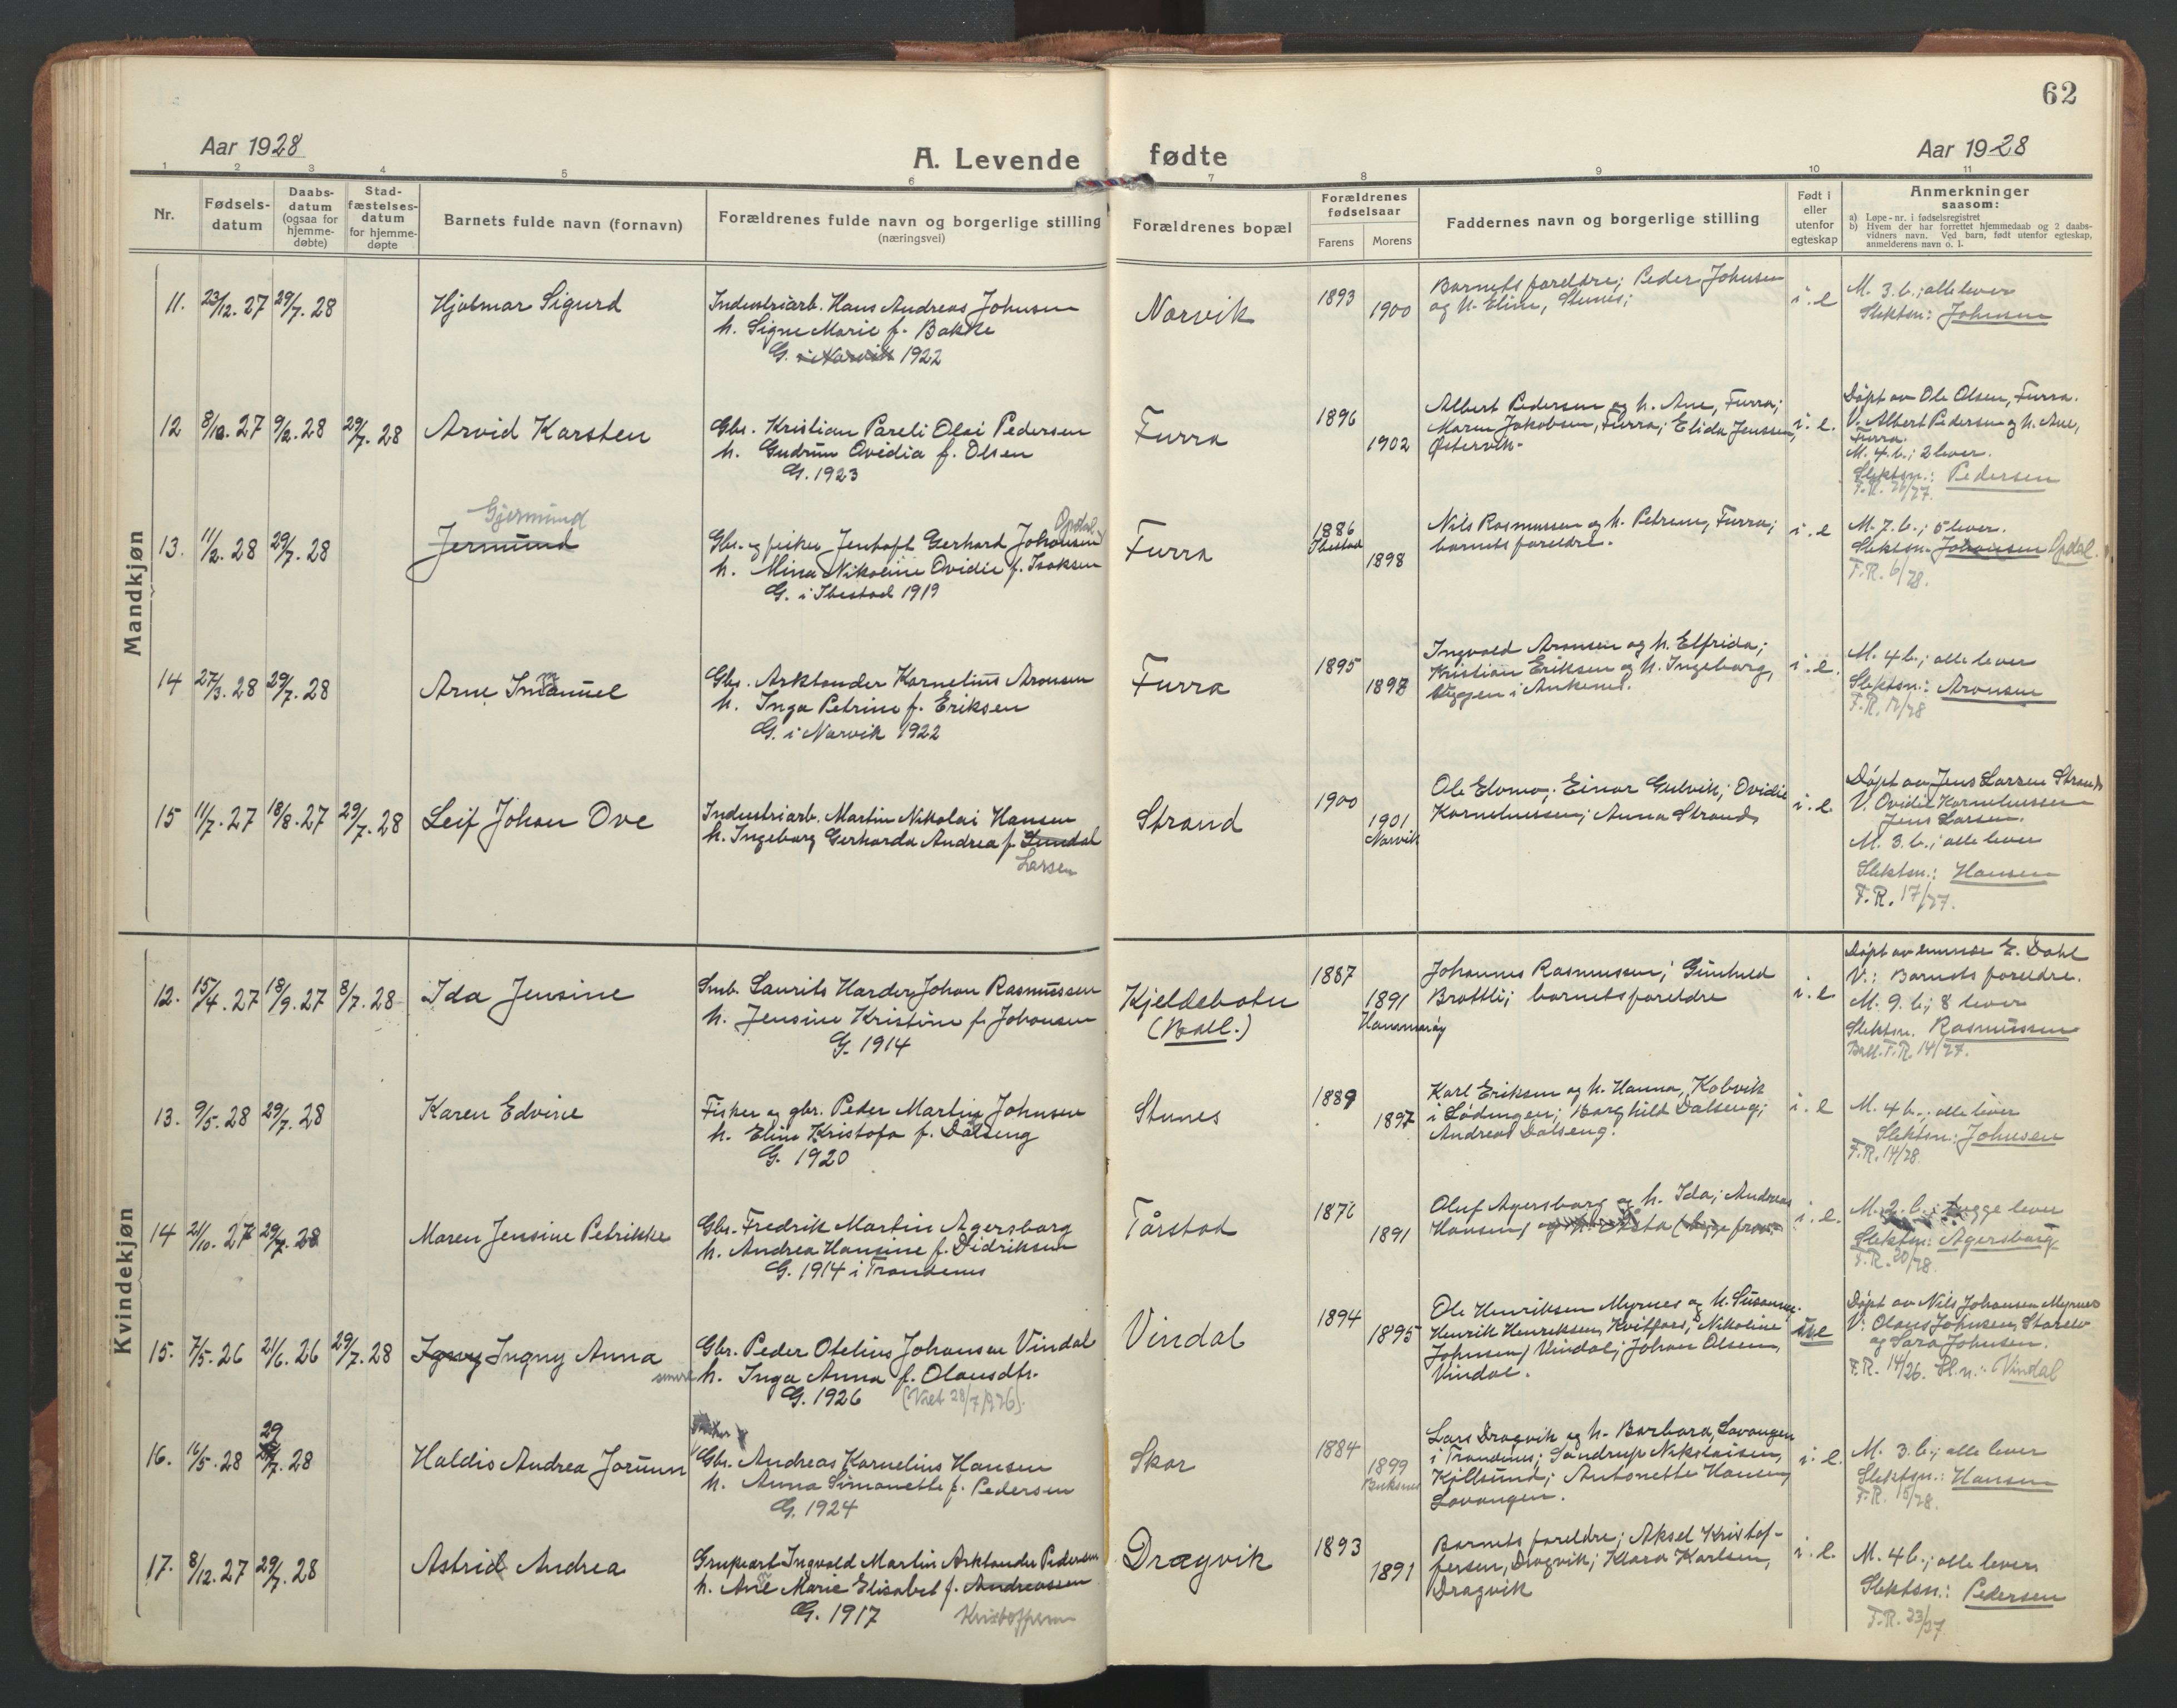 62
Aar 1928
A. Levende fødte
Aar 1928
1 2 3 4 5 6 7 8 9 10 11
Nr.
Fødsels-
datum
Daabs-
datum
(ogsaa for
hjemme-
døbte)
Stad-
fæstelses-
datum
for hjemme-
døpte
Barnets fulde navn (fornavn)
Forældrenes fulde navn og borgerlige stilling
(næringsvei)
Forældrenes bopæl
Forældrenes
fødselsaar
Farens Morens
Faddernes navn og borgerlige stilling
Født i
eller
utenfor
egteskap
Anmerkninger
saasom:
a) Løpe-nr. i fødselsregistret
b) Hvem der har forrettet hjemmedaab og 2 daabs-
vidners navn. Ved barn, født utenfor egteskap,
anmelderens navn o. l.
Mandkjøn
11. 23/12. 27 29/7. 28
Hjalmar Sigurd
Industriarb. Hans Andreas Johnsen
h. Signe Marie f. Bakke
G. i Narvik 1922
Narvik
1893
1900
Barnets foreldre; Peder Johnsen
og h. Eline, Stunes;
i. e
M. 3. b.; alle lever
Slektsn: Johnsen
12 8/10. 27 9/2. 28 29/7. 28
Arvid Karsten
Gbr. Kristian Pareli Olai Pedersen
h. Gudrun Ovedia f. Olsen
G. 1923
Furra
1896
1902
Albert Pedersen og h. Ane, Furra;
Maren Jakobsen, Furra; Elida Jenssen,
Østervik.
i. e.
Døpt av Ole Olsen, Furra.
V. Albert Pedersen og h. Ane,
Furra.
M. 4. b.; 2 lever.
Slektsn.: Pedersen
Gjermund
13. 11/2. 28 29/7. 28
Jermund
Opdal
Gbr. og fisker Jentoft Gerhard Johansen
h. Mina Nikoline Ovidie f. Isaksen
G. i Ibestad 1919
Furra
1886
Ibestad
1898
Nils Rasmussen og h. Petrine, Furra;
barnets foreldre.
i. e
M. 7. b.; 5 lever.
Slektsn. Johansen Opdal.
F.R. 6/28.
14 27/3. 28 29/7. 28
Arne Immanuel
Gbr. Arktander Kornelius Aronsen
h. Inga Petrine f. Eriksen
G. i Narvik 1922
Furra
1895
1898
Ingvald Aronsen og h. Elfrida;
Kristian Eriksen og h. Ingeborg,
i Ankenes.
i. e.
M. 4 b.; alle lever
Slektsn.: Aronsen
F.R. 12/28
15 11/7. 27 18/8. 27 29/7. 28
Leif Johan Ove
Industriarb. Martin Nikolai Hansen
h. Ingeborg Gerharda Andrea f.
Larsen
Strand
1900
1901
Narvik
Ole Elvmo; Einar Gulvik; Ovidie
Korneliussen; Anna Strand
i. e.
Døpt av Jens Larsen Strand
V. Ovidie Korneliussen
Jens Larsen.
M. 3. b.; alle lever
Slektsn.: Hansen
F.R. 17/27.
Kvindekjøn
12. 15/4. 27 18/9. 27 8/7. 28
Ida Jensine
Smb. Laurits Harder Johan Rasmussen
h. Jensine Kristine f. Johansen
G. 1914
Kjeldebotn
(Ball.)
1887
1891
Hammarøy
Johannes Rasmussen; Gunhild
Brattli; barnets foreldre
i. e
Døpt av E. Dahl
V.: Barnets foreldre.
M. 9. b.; 8 lever
Slektsn. Rasmussen
Ball. F.R. 14/27.
13. 9/5. 28 29/7. 28
Karen Edvine
Fisker og gbr. Peder Martin Johnsen
h. Eline Kristofa f. Dalseng
G. 1920
Stunes
1889
1897
Karl Eriksen og h. Hanna, Kobvik
i Lødingen; Borghild Dalseng;
Andreas Dalseng.
i. e
M. 4 b.; alle lever
Slektsn: Johnsen
F.R. 14/28
14 21/10. 27 29/7. 28
Maren Jensine Petrikke
Gbr. Fredrik Martin Agersborg
h. Andrea Hansine f. Didriksen
G. 1914 i Trondenes
Tårstad
1876
1891
Oluf Agersborg og h. Ida; Andreas
Hansen
i. e.
M. 2. b.; begge lever
Slektsn: Agersborg
F.R. 20/28.
15. 7/5. 26 21/6. 26 29/7. 28
Ingny Anna
Gbr. Peder Otelius Johansen Vindal
senere h. Inga Anna f. Olausdtr.
G. 1926 (Viet 28/7 1926).
Vindal
1894
1895
Ole Henriksen Myrnes og h. Susanna.
Henrik Henriksen, Kvitfors; Nikoline
Johnsen, Vindal; Johan Olsen,
Vindal.
Døpt av Nils Johansen Myrnes
V: Olaus Johnsen,
og Sara Johnsen.
F.R. 14/26. Sl.n.: Vindal
16. 16/5. 28 29/7. 28
Haldis Andrea Jorunn
Gbr. Andreas Kornelius Hansen
h. Anna Simonette f. Pedersen
G. 1924
Skar
1884
1899
Lars Dragvik og h. Barbara, Lavangen
i Trondenes; Sandrup Nikolaisen,
Kjellsund; Antonette Hansen,
Lavangen.
i. e.
M. 3. b.; alle lever
Slektsn.: Hansen
F.R. 15/28.
17. 8/12. 27 29/7. 28
Astrid Andrea
Grubearb. Ingvald Martin Arktander Pedersen
h. Ane Marie Elisabet f. Andreassen
G. 1917 Kristoffersen
Dragvik
1893
1891
Barnets foreldre; Aksel Kristof-
fersen, Dragvik; Klara Karlsen,
Dragvik
i. e.
M. 4 b.; alle lever.
Slektsn.: Pedersen
F.R. 23/27